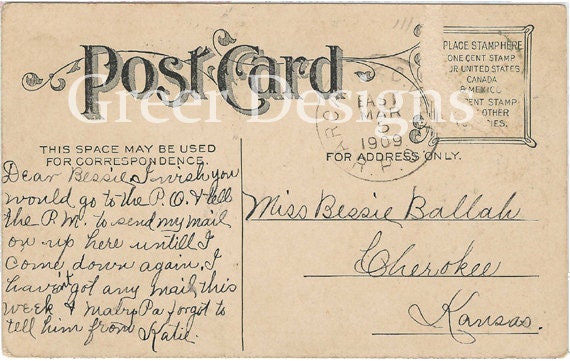 Post Card
Greer Designs
PLACE STAMP HERE
ONE CENT STAMP
OR UNITED STATES
CANADA
& MEXICO
CENT STAMP
OTHER
EAST
MAR
5
1909
R.P.O.
THIS SPACE MAY BE USED
FOR CORRESPONDENCE.
FOR ADDRESS ONLY.
Dear Bessie I wish you
would go to the P.O. & tell
the P.M. to send my mail
on up here untill I
come down again, I
haven't got any mail this
week & maby Pa forgot to
tell him from Katie.
Miss Bessie Ballah
Cherokee
Kansas.